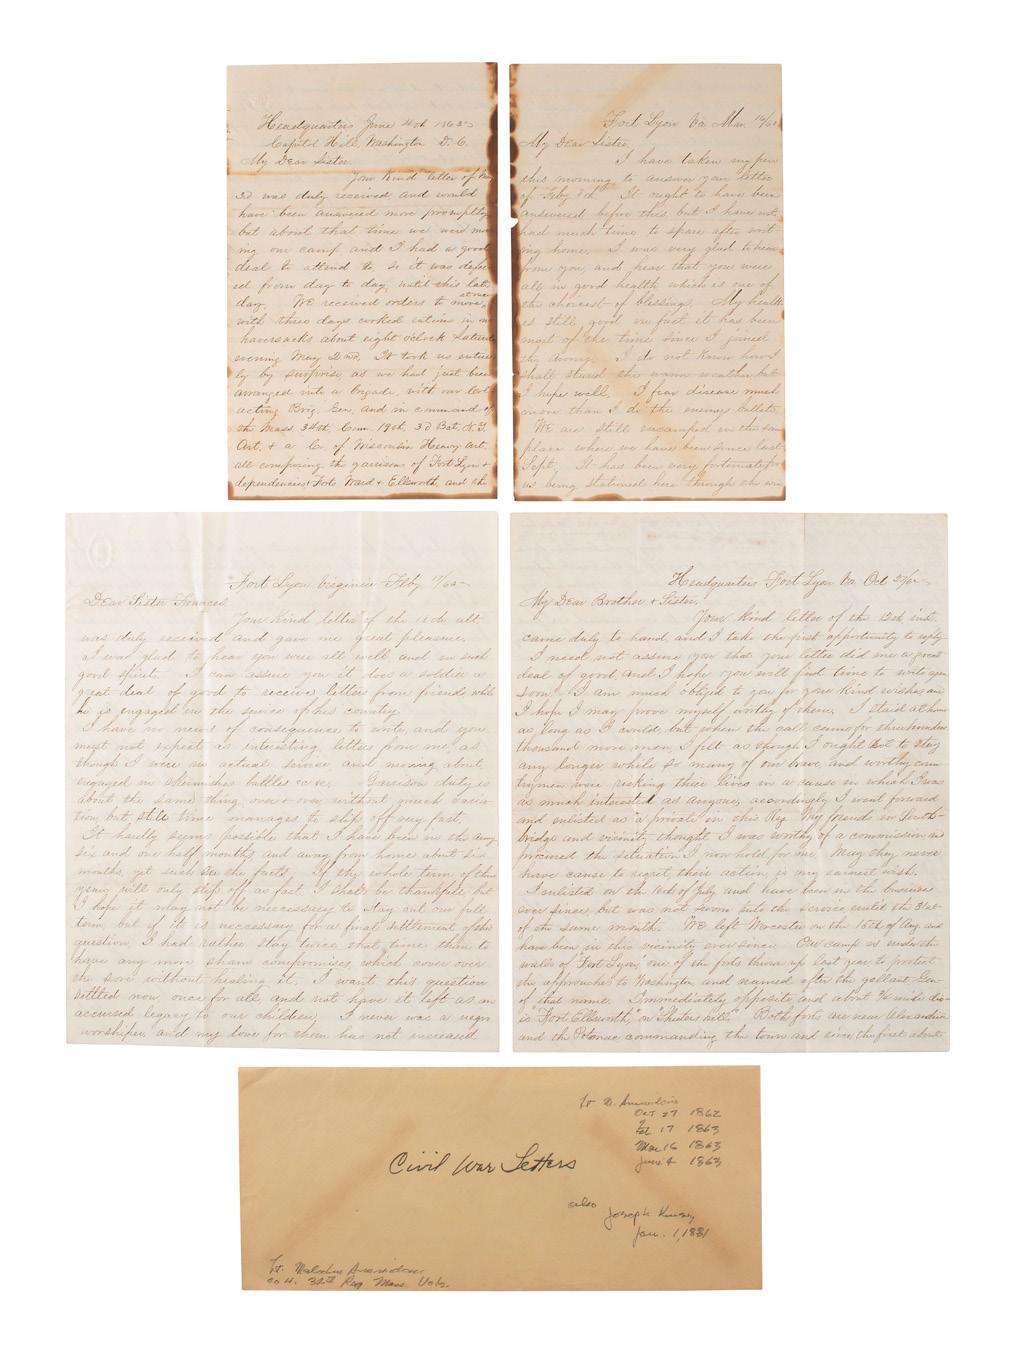 Headquarters June 4th 1863
Capitol Hill, Washington D. C.
My Dear Sister
Your kind letter of
3d was duly received, and would
have been answered more promptly
but about that time we were mo
ving our camp, and I had a good
deal to attend to, so it was defer
ed from day to day, until this late
day. We received orders to move, at once
with three days cooked rations in
haversacks about eight o'clock Saturd
evening May 2nd. It took us entire
ly by surprise, as we had just been
arranged into a brigade, with our Col
acting Brig. Gen, and in command of
the Mass 34th, Conn. 19th, 3d Bat, N.Y.
Art. & a C. of Wisconsin Heavy Art.
all composing the garrisons of Fort Lyon &
dependencies Forts Ward & Ellsworth, and the
Fort Lyon Va Mar. 16/63
My Dear Sister,
I have taken my pen
this morning to answer your letter
of Feby 8th. It ought to have been
answered before this but I have not
had much time to spare after writ
ing home. I was very glad to hear
from you, and hear that you were
all in good health which is one of
the choicest of blessings. My health
is still good in fact it has been
most of the time since I joined
the army. I do not know how I
shall stand the warm weather but
I hope well. I fear disease much
more than I do the enemy bullets.
We are still encamped in the same
place where we have been since last
Sept. It has been very fortunate for
us being stationed here through the win
Fort Lyon Virginia Feby 17/63
Dear Sister Frances
Your kind letter of the ult
was duly received and gave me great pleasure.
I was glad to hear you were all well, and in such
good spirits. I can assure you it does a soldier a
great deal of good to receive letters from friends while
he is engaged in the service of his country.
I have no news of consequence to write, and you
must not expect as interesting letters from me, as
though I were in actual service, and moving about,
engaged in skirmishes battles &c &c. Garrison duty is
about the same thing, over & over, without much varia
tion, but still time manages to slip off very fast.
It hardly seems possible that I have been in the army
six and one half months and away from home about six
months, yet such are the facts. If the whole term of three
years will only slip off as fast I shall be thankful, but
I hope it may not be neccessary to stay out our full
term, but if it is neccessary for a final settlement of this
question, I had rather stay twice that time than to
have any more sham compromises, which cover over
the sore without healing it. I want this question
settled now, once for all, and not have it left as an
accursed legacy to our children. I never was a negro
worshiper, and my love for them has not increased
Headquarters Fort Lyon Va. Oct 27/62
My Dear Brother & Sister,
Your kind letter of the 12th inst.
came duly to hand, and I take the first opportunity to reply
I need not assure you that your letter did me a great
deal of good, and I hope you will find time to write again
soon. I am much obliged to you for your kind wishes and
I hope I may prove myself worthy of them. I staid at home
as long as I could, but when the call came for three hundred
thousand more men, I felt as though I ought not to stay
any longer while so many of our brave and worthy coun
trymen were risking their lives in a cause in which I was
as much interested as anyone, accordingly I went forward
and enlisted as a private in this Reg. My friends in South-
bridge and vicinity thought I was worthy of a commission and
procured the situation I now hold for me. May they never
have cause to regret their action, is my earnest wish.
I enlisted on the of July and have been in the business
ever since, but was not sworn into the service, until the 31st
of the same month. We left Worcester on the 15th of Aug. and
have been in this vicinity ever since. Our camp is under the
walls of Fort Lyon, one of the forts thrown up last year to protect
the approaches to Washington and named after the gallant Gen
of that name. Immediately opposite, and about 3/4 mile dis-
is "Fort Ellsworth," on "Shuters hill." Both forts are near Alexandria
and the Potomac commanding the town and river, the first about
To D.
Oct 27 1862
Feb 17 1863
Mar 16 1863
June 4 1863
Civil War Letters
also
Joseph
Jan. 1, 1881
Lt.
Co H. 34th Reg Mass Vols.